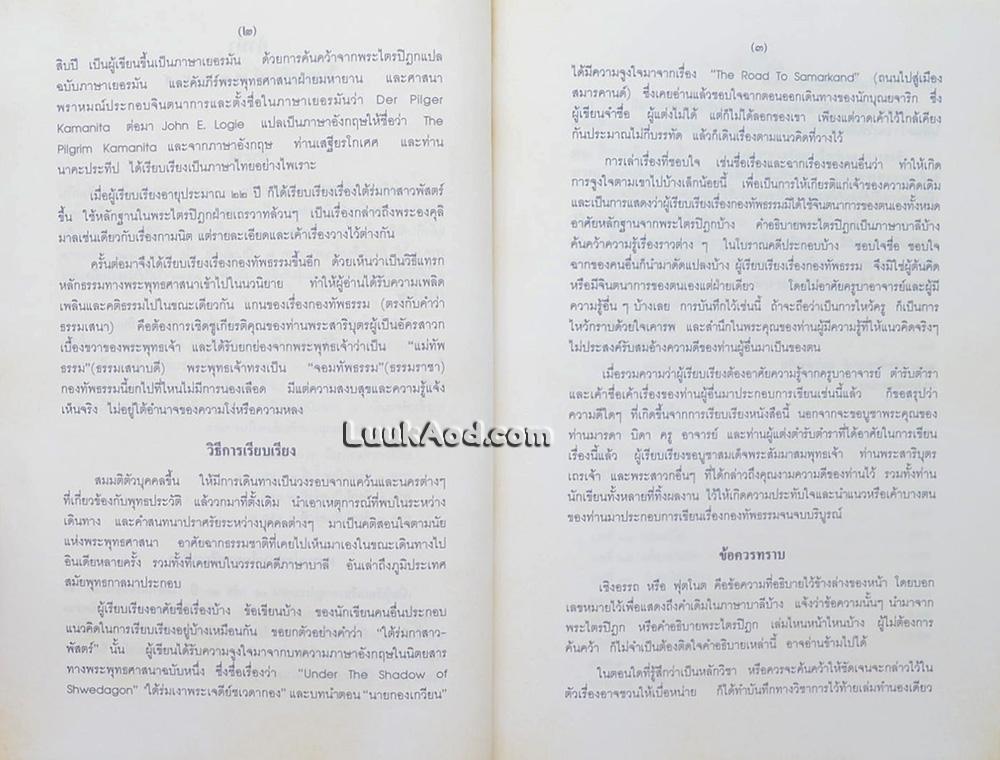 (๒)
สิบปี เป็นผู้เขียนขึ้นเป็นภาษาเยอรมัน ด้วยการค้นคว้าจากพระไตรปิฎกแปล
ฉบับภาษาเยอรมัน และคัมภีร์พระพุทธศาสนาฝ่ายมหายาน และศาสนา
พราหมณ์ประกอบจินตนาการและตั้งชื่อในภาษาเยอรมันว่า Der Pilger
Kamanita ต่อมา John E. Logie แปลเป็นภาษาอังกฤษให้ชื่อว่า The
Pilgrim Kamanita และจากภาษาอังกฤษ ท่านเสฐียรโกเศศ และท่าน
นาคะประทีป ได้เรียบเรียงเป็นภาษาไทยอย่างไพเราะ
เมื่อผู้เรียบเรียงอายุประมาณ ๒๒ ปี ก็ได้เรียบเรียงเรื่องใต้ร่มกาสาวพัสตร์
ขึ้น ใช้หลักฐานในพระไตรปิฎกฝ่ายเถรวาทล้วนๆ เป็นเรื่องกล่าวถึงพระองคุลิ
มาลเช่นเดียวกับเรื่องกามนิต แต่รายละเอียดและเค้าเรื่องวางไว้ต่างกัน
ครั้นต่อมาจึงได้เรียบเรียงเรื่องกองทัพธรรมขึ้นอีก ด้วยเห็นว่าเป็นวิธีแทรก
หลักธรรมทางพระพุทธศาสนาเข้าไปในนวนิยาย ทำให้ผู้อ่านได้รับความเพลิด
เพลินและคติธรรมไปในขณะเดียวกัน แกนของเรื่องกองทัพธรรม (ตรงกับคำว่า
ธรรมเสนา) คือต้องการเชิดชูเกียรติคุณของท่านพระสาริบุตรผู้เป็นอัครสาวก
เบื้องขวาของพระพุทธเจ้า และได้รับยกย่องจากพระพุทธเจ้าว่าเป็น “แม่ทัพ
ธรรม”(ธรรมเสนาบดี) พระพุทธเจ้าทรงเป็น “จอมทัพธรรม”(ธรรมราชา)
กองทัพธรรมนี้ยกไปที่ไหนไม่มีการนองเลือด มีแต่ความสงบสุขและความรู้แจ้ง
เห็นจริง ไม่อยู่ใต้อำนาจของความโง่หรือความหลง
วิธีการเรียบเรียง
สมมติตัวบุคคลขึ้น ให้มีการเดินทางเป็นวงรอบจากแคว้นและนครต่างๆ
ที่เกี่ยวข้องกับพุทธประวัติ แล้ววกมาที่ตั้งเดิม นำเอาเหตุการณ์ที่พบในระหว่าง
เดินทาง และคำสนทนาปราศรัยระหว่างบุคคลต่างๆ มาเป็นคติสอนใจตามนัย
แห่งพระพุทธศาสนา อาศัยฉากธรรมชาติที่เคยไปเห็นมาเองในขณะเดินทางไป
อินเดียหลายครั้ง รวมทั้งที่เคยพบในวรรณคดีภาษาบาลี อันเล่าถึงภูมิประเทศ
สมัยพุทธกาลมาประกอบ
ผู้เรียบเรียงอาศัยชื่อเรื่องบ้าง ข้อเขียนบ้าง ของนักเขียนคนอื่นประกอบ
แนวคิดในการเรียบเรียงอยู่บ้างเหมือนกัน ขอยกตัวอย่างคำว่า “ใต้ร่มกาสาว-
พัสตร์” นั้น ผู้เขียนได้รับความจูงใจมาจากบทความภาษาอังกฤษในนิตยสาร
ทางพระพุทธศาสนาฉบับหนึ่ง ซึ่งชื่อเรื่องว่า “Under The Shadow of
Shwedagon” “ใต้ร่มเงาพระเจดีย์ชเวดากอง” และบทนำตอน “นายกองเกวียน”
(๓)
ได้มีความจูงใจมาจากเรื่อง “The Road To Samarkand” (ถนนไปสู่เมือง
สมารคานด์) ซึ่งเคยอ่านแล้วชอบใจฉากตอนออกเดินทางของนักบุณยจาริก ซึ่ง
ผู้เขียนจำชื่อ ผู้แต่งไม่ได้ แต่ก็ไม่ได้ลอกของเขา เพียงแต่วาดเค้าไว้ใกล้เคียง
กันประมาณไม่กี่บรรทัด แล้วก็เดินเรื่องตามแนวคิดที่วางไว้
การเล่าเรื่องที่ชอบใจ เช่นชื่อเรื่องและฉากเรื่องของคนอื่นว่า ทำให้เกิด
การจูงใจตามเขาไปบ้างเล็กน้อยนี้ เพื่อเป็นการให้เกียรติแก่เจ้าของความคิดเดิม
และเป็นการแสดงว่าผู้เรียบเรียงเรื่องกองทัพธรรมมิได้ใช้จินตนาการของตนเองทั้งหมด
อาศัยหลักฐานจากพระไตรปิฎกบ้าง คำอธิบายพระไตรปิฎกเป็นภาษาบาลีบ้าง
ค้นคว้าความรู้เรื่องราวต่าง ๆ ในโบราณคดีประกอบบ้าง ชอบใจชื่อ ชอบใจ
ฉากของคนอื่นก็นำมาดัดแปลงบ้าง ผู้เรียบเรียงเรื่องกองทัพธรรม จึงมิใช่ผู้ต้นคิด
หรือมีจินตนาการของตนเองแต่ฝ่ายเดียว โดยไม่อาศัยครูบาอาจารย์และผู้มี
ความรู้อื่น ๆ บ้างเลย การบันทึกไว้เช่นนี้ ถ้าจะถือว่าเป็นการไหว้ครู ก็เป็นการ
ไหว้กราบด้วยใจเคารพ และสำนึกในพระคุณของท่านผู้มีความรู้ที่ให้แนวคิดจริงๆ
ไม่ประสงค์รับสมอ้างความดีของท่านผู้อื่นมาเป็นของตน
เมื่อรวมความว่าผู้เรียบเรียงต้องอาศัยความรู้จากครูบาอาจารย์ ตำรับตำรา
และเค้าชื่อเค้าเรื่องของท่านผู้อื่นมาประกอบการเขียนเช่นนี้แล้ว ก็ขอสรุปว่า
ความดีใดๆ ที่เกิดขึ้นจากการเรียบเรียงหนังสือนี้ นอกจากจะขอบูชาพระคุณของ
ท่านมารดา บิดา ครู อาจารย์ และท่านผู้แต่งตำรับตำราที่ได้อาศัยในการเขียน
เรื่องนี้แล้ว ผู้เรียบเรียงขอบูชาสมเด็จพระสัมมาสมพุทธเจ้า ท่านพระสาริบุตร
เถรเจ้า และพระสาวกอื่นๆ ที่ได้กล่าวถึงคุณงามความดีของท่านไว้ รวมทั้งท่าน
นักเขียนทั้งหลายที่ทิ้งผลงาน ไว้ให้เกิดความประทับใจและนำแนวหรือเค้าบางตน
ของท่านมาประกอบการเขียนเรื่องกองทัพธรรมจนจบบริบูรณ์
ข้อควรทราบ
เชิงอรรถ หรือ ฟุตโนต คือข้อความที่อธิบายไว้ข้างล่างของหน้า โดยบอก
เลขหมายไว้เพื่อแสดงถึงคำเดิมในภาษาบาลีบ้าง แจ้งว่าข้อความนั้นๆ นำมาจาก
พระไตรปิฎก หรือคำอธิบายพระไตรปิฎก เล่มไหนหน้าไหนบ้าง ผู้ไม่ต้องการ
ค้นคว้า ก็ไม่จำเป็นต้องติดใจคำอธิบายเหล่านี้ อาจอ่านข้ามไปได้
ในตอนใดที่รู้สึกว่าเป็นหลักวิชา หรือควรจะค้นคว้าให้ชัดเจนจะกล่าวไว้ใน
ตัวเรื่องอาจชวนให้เบื่อหน่าย ก็ได้ทำบันทึกทางวิชาการไว้ท้ายเล่มทำนองเดียว
LuukAod.com